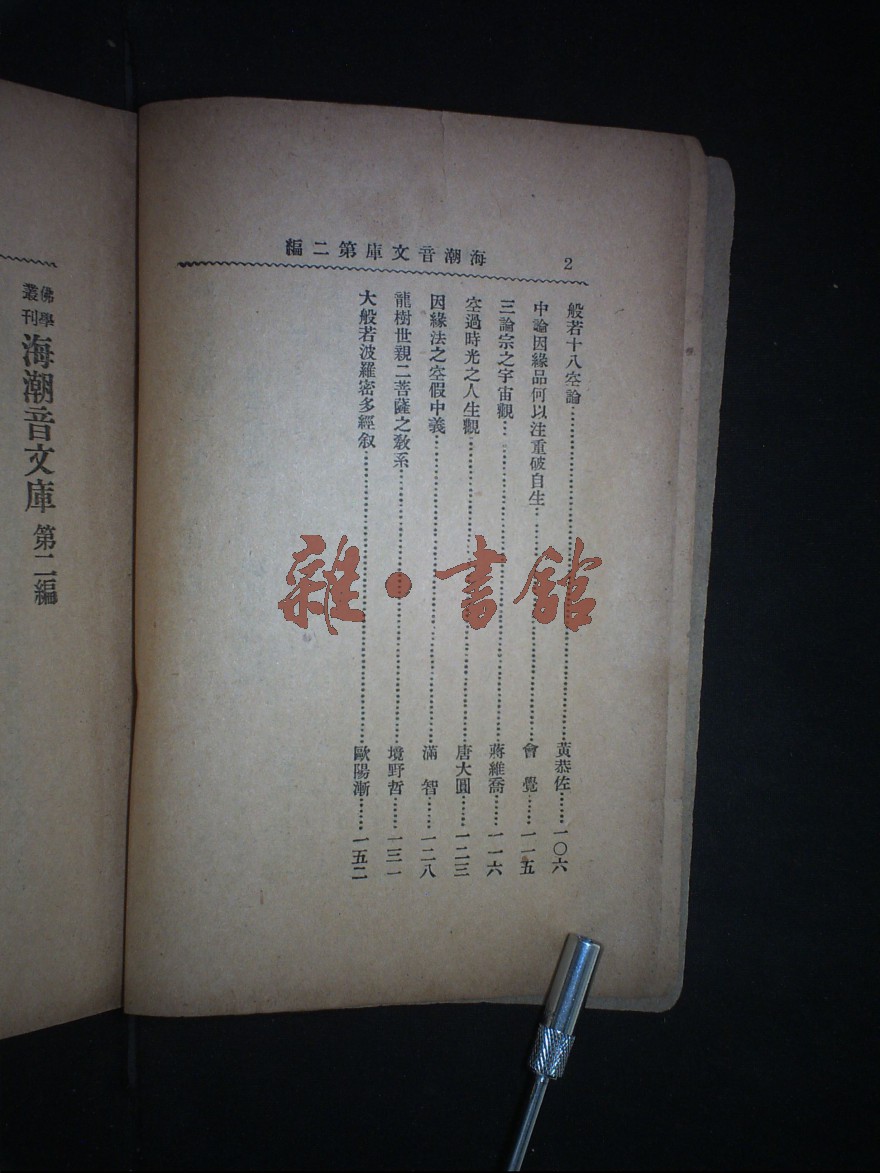 2
海潮音文庫第二編
般若十八空論……黃恭佐……一〇六
中論因緣品何以注重破自生……會覺……一一五
三論宗之宇宙觀……蔣維喬……一一六
空過時光之人生觀……唐大圓……一二三
因緣法之空假中義……滿智……一二八
龍樹世親二菩薩之教系……境野哲……一三一
大般若波羅密多經叙……歐陽漸……一五二
佛學叢刊 海潮音文庫 第二編
雜·書館